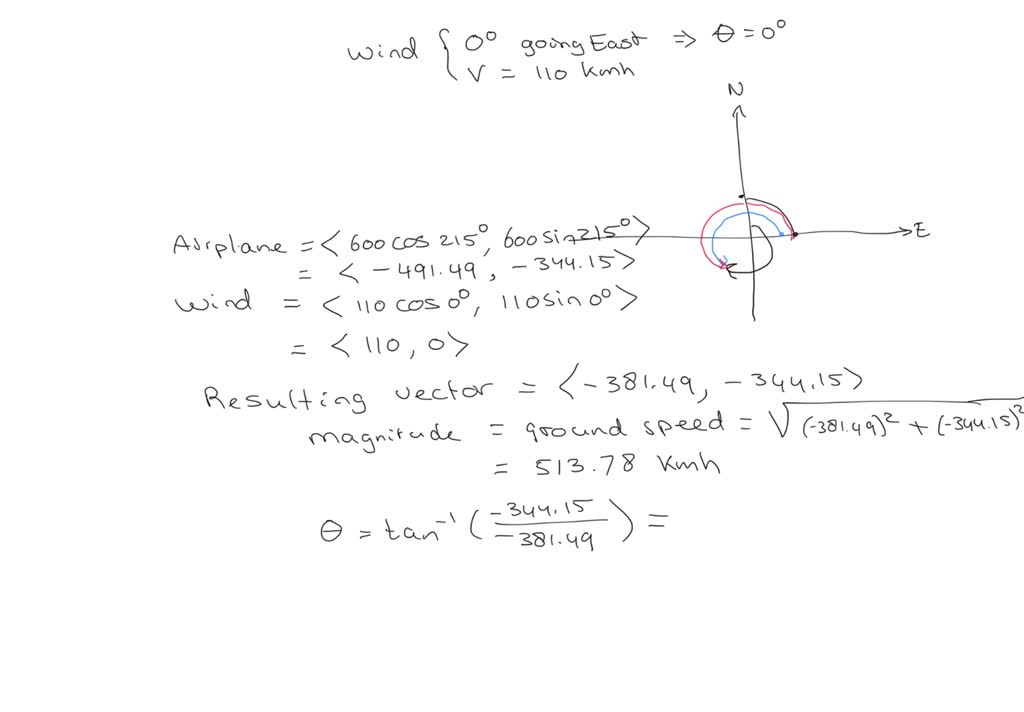 wind { 0° going East ⇒ θ = 0°
V = 110 kmh
N
E
Airplane = < 600 cos 215°, 600 sin 215° >
= < -491.49, -344.15 >
Wind = < 110 cos 0°, 110 sin 0° >
= < 110, 0 >
Resulting vector = < -381.49, -344.15 >
magnitude = ground speed = √(-381.49)² + (-344.15)²
= 513.78 kmh
θ = tan⁻¹ ( -344.15 / -381.49 ) =